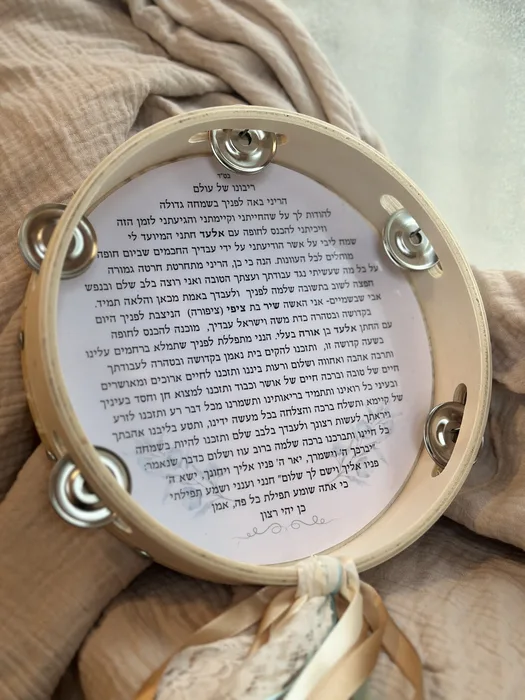 בס"ד
ריבונו של עולם
הריני באה לפניך בשמחה גדולה
להודות לך על שהחייתני וקיימתני והגיעתני לזמן הזה
וזיכיתני להכנס לחופה עם אלעד חתני המיועד לי
שמח ליבי על אשר הודיעתני על ידי עבדיך החכמים שביום חופה
מוחלים לכל העוונות. הנה כי כן, הריני מתחרטת חרטה גמורה
על כל מה שעשיתי נגד עבודתך ורצונך הטובה ואני רוצה בלב שלם ובנפש
חפצה לשוב בתשובה שלמה לפניך ולעבדך באמת מכאן והלאה תמיד.
אבי שבשמיים- אני האשה שיר בת ציפי (ציפורה) הניצבת לפניך היום
בקדושה ובטהרה כדת משה וישראל עבדיך, מוכנה להכנס לחופה
עם החתן אלעד בן אורה בעלי. הנני מתפללת לפניך שתמלא ברחמים עלינו
בשעה קדושה זו, ותזכנו להקים בית נאמן בקדושה ובטהרה לעבודתך
ותרבה אהבה ואחווה ושלום ורעות ביננו ותזכנו לחיים ארוכים ומאושרים
חיים של טובה וברכה חיים של אושר וכבוד ותזכנו למצוא חן וחסד בעיניך
ובעיני כל רואינו ותתמיד בריאותינו ותשמרנו מכל דבר רע ותזכנו לזרע
של קיימא ותשלח ברכה והצלחה בכל מעשה ידינו, ותטע בליבנו אהבתך
ויראתך לעשות רצונך ולעבדך בלבב שלם ותזכנו להיות בשמחה
כל חיינו ותברכנו ברכה שלמה ברוב עוז ושלום כדבר שנאמר:
"יברכך ה' וישמורך, יאר ה' פניו אליך ויחונך, ישא ה'
פניו אליך וישם לך שלום" חנני וענני ושמע תפילתי
כי אתה שומע תפילת כל פה, אמן
כן יהי רצון